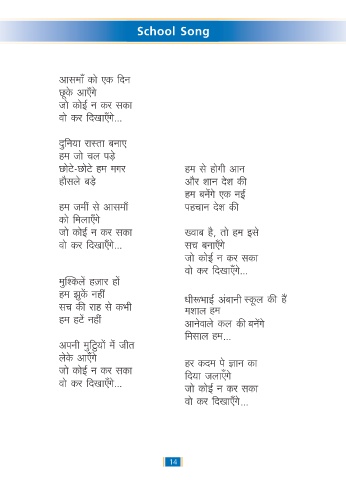 School Song
आसमाँ को एक दिन
छूके आएँगे
जो कोई न कर सका
वो कर दिखाएँगे...
दुनिया रास्ता बनाए
हम जो चल पड़े
छोटे-छोटे हम मगर
हौसले बड़े
हम जमीं से आसमाँ
को मिलाएँगे
जो कोई न कर सका
वो कर दिखाएँगे...
मुश्किलें हज़ार हों
हम झुकें नहीं
सच की राह से कभी
हम हटें नहीं
अपनी मुट्ठियों में जीत
लेके आएँगे
जो कोई न कर सका
वो कर दिखाएँगे...
हम से होगी आन
और शान देश की
हम बनेंगे एक नई
पहचान देश की
ख्वाब है, तो हम इसे
सच बनाएँगे
जो कोई न कर सका
वो कर दिखाएँगे...
धीरूभाई अंबानी स्कूल की हैं
मशाल हम
आनेवाले कल की बनेंगे
मिसाल हम...
हर कदम पे ज्ञान का
दिया जलाएँगे
जो कोई न कर सका
वो कर दिखाएँगे...
14